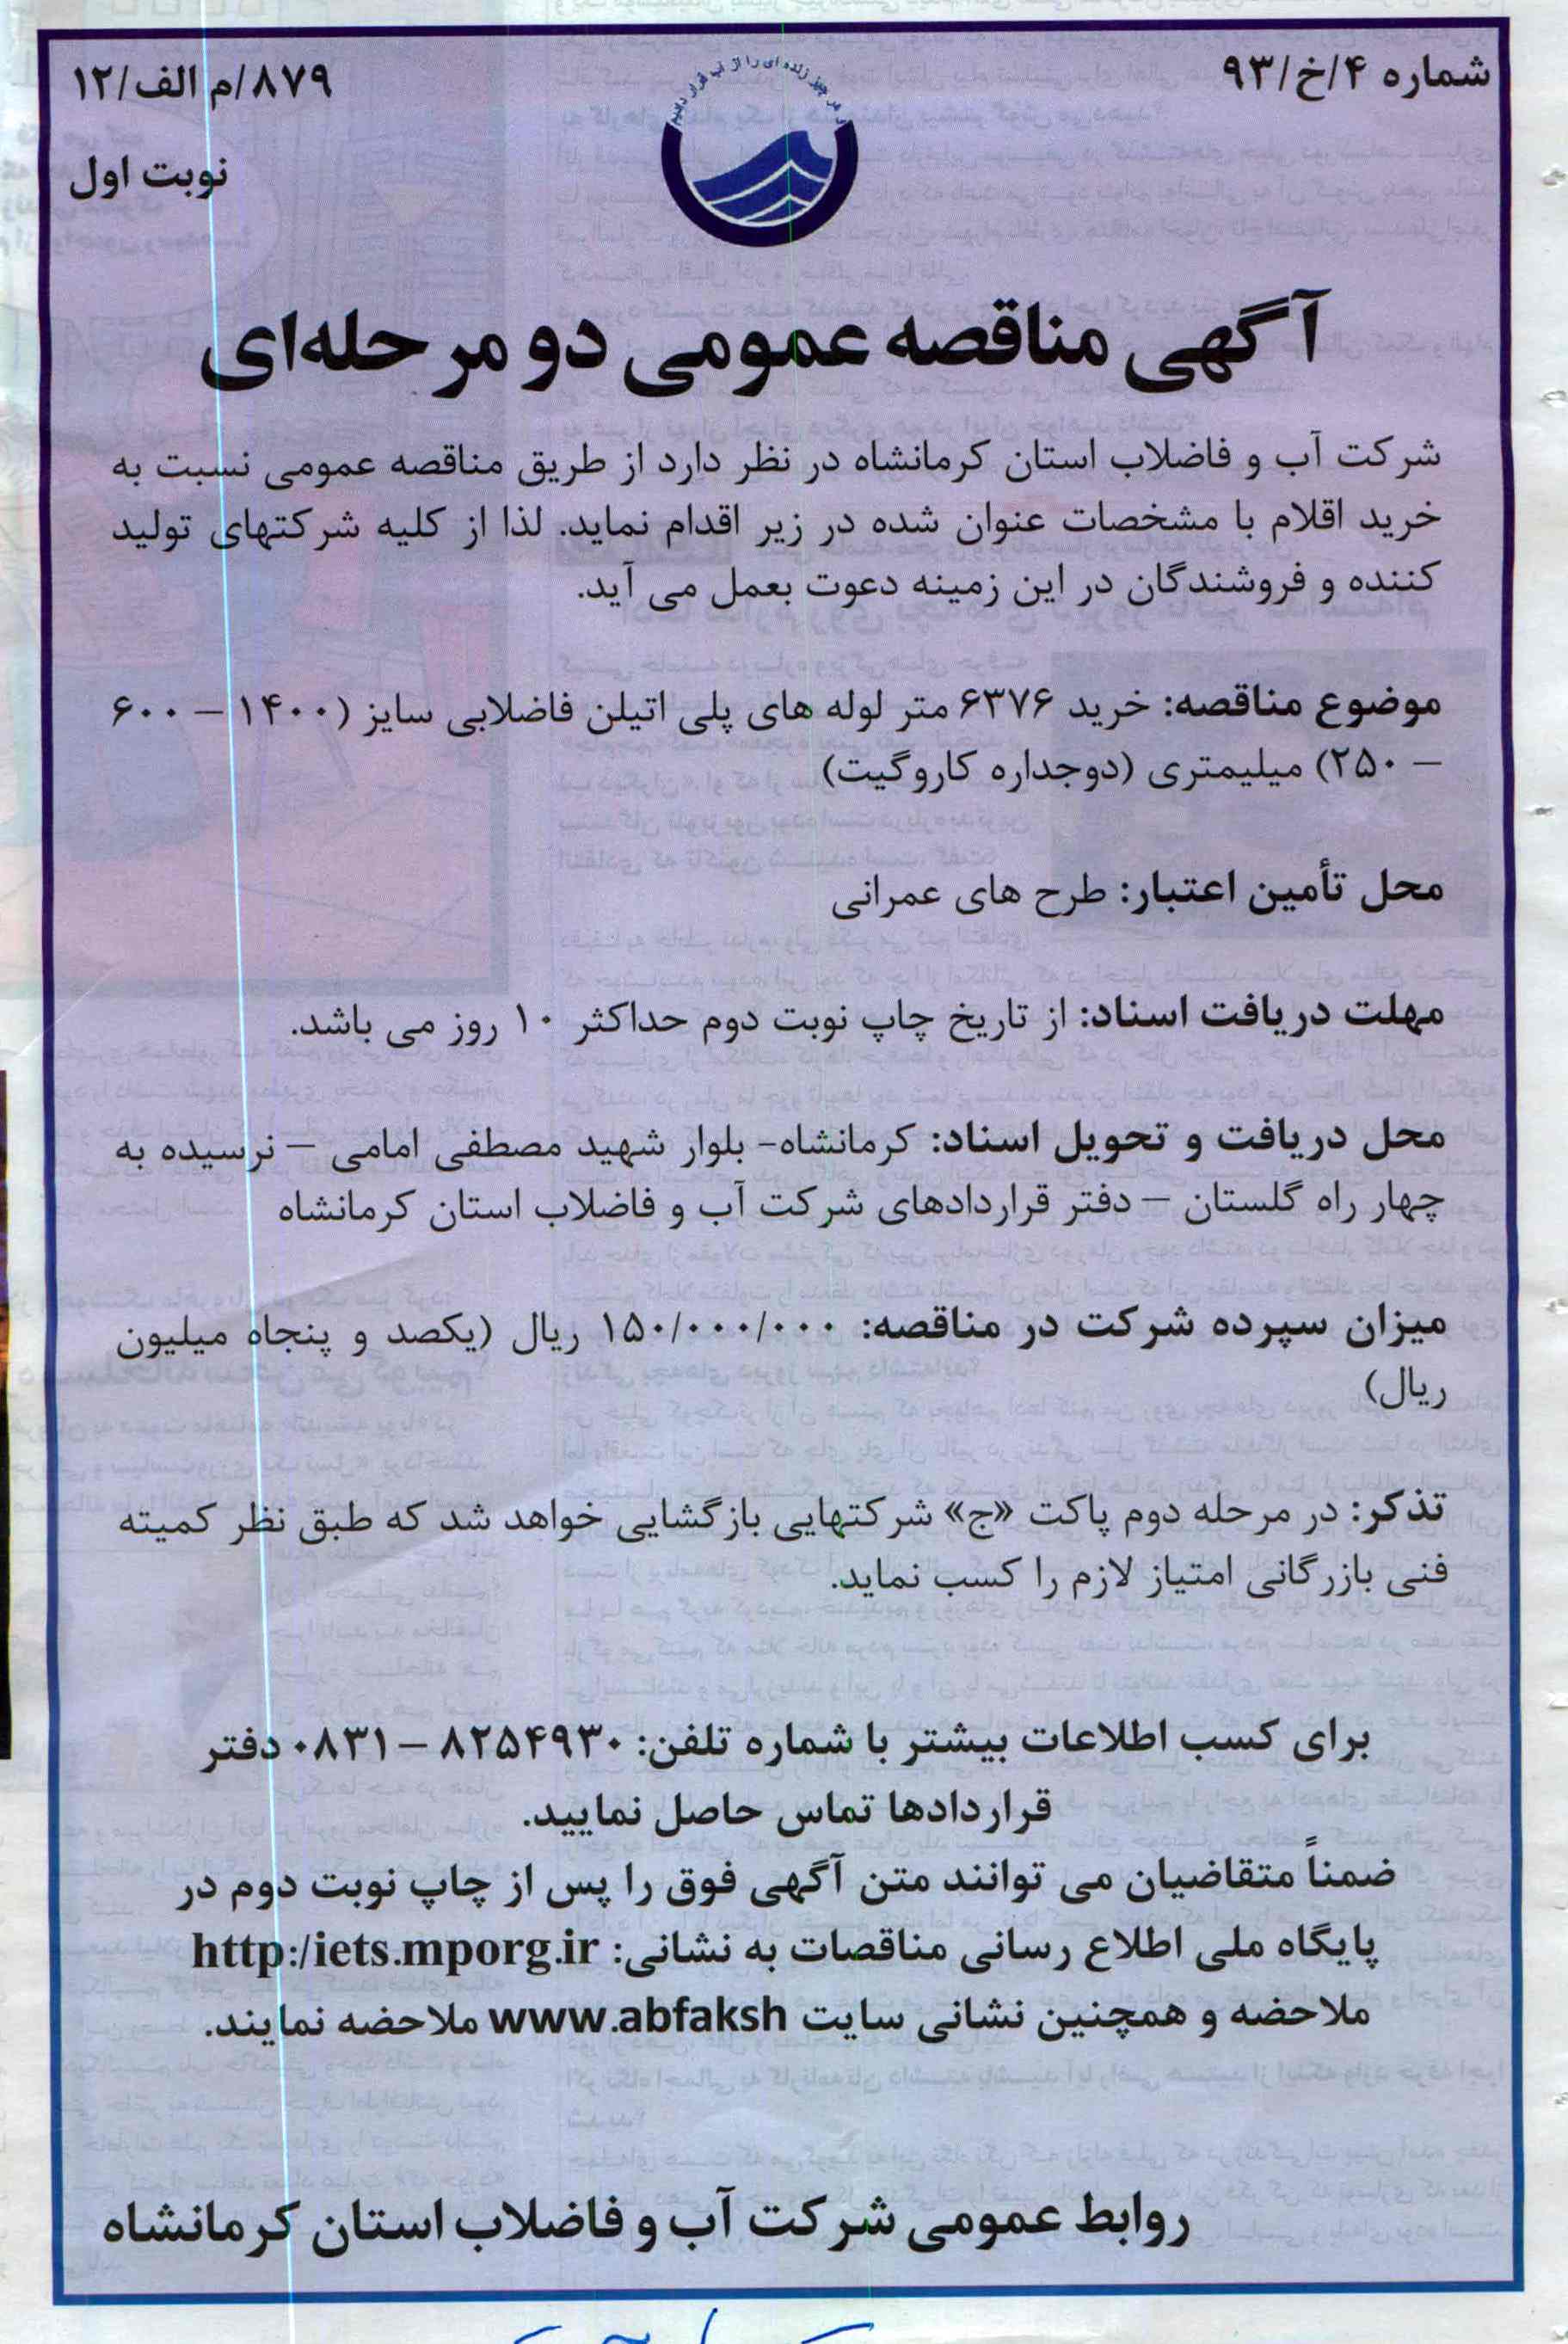 شماره ۴/خ/۹۳
۸۷۹/م الف/۱۲
نوبت اول
هر چیز زنده ای را از آب قرار دادیم
آگهی مناقصه عمومی دو مرحله‌ای
شرکت آب و فاضلاب استان کرمانشاه در نظر دارد از طریق مناقصه عمومی نسبت به
خرید اقلام با مشخصات عنوان شده در زیر اقدام نماید. لذا از کلیه شرکتهای تولید
کننده و فروشندگان در این زمینه دعوت بعمل می آید.
موضوع مناقصه: خرید ۶۳۷۶ متر لوله های پلی اتیلن فاضلابی سایز (۱۴۰۰ – ۶۰۰
– ۲۵۰) میلیمتری (دوجداره کاروگیت)
محل تأمین اعتبار: طرح های عمرانی
مهلت دریافت اسناد: از تاریخ چاپ نوبت دوم حداکثر ۱۰ روز می باشد.
محل دریافت و تحویل اسناد: کرمانشاه- بلوار شهید مصطفی امامی – نرسیده به
چهار راه گلستان – دفتر قراردادهای شرکت آب و فاضلاب استان کرمانشاه
میزان سپرده شرکت در مناقصه: ۱۵۰/۰۰۰/۰۰۰ ریال (یکصد و پنجاه میلیون
ریال)
تذکر: در مرحله دوم پاکت «ج» شرکتهایی بازگشایی خواهد شد که طبق نظر کمیته
فنی بازرگانی امتیاز لازم را کسب نماید.
برای کسب اطلاعات بیشتر با شماره تلفن: ۸۲۵۴۹۳۰ – ۰۸۳۱ دفتر
قراردادها تماس حاصل نمایید.
ضمناً متقاضیان می توانند متن آگهی فوق را پس از چاپ نوبت دوم در
پایگاه ملی اطلاع رسانی مناقصات به نشانی: http:/iets.mporg.ir
ملاحضه و همچنین نشانی سایت www.abfaksh ملاحضه نمایند.
روابط عمومی شرکت آب و فاضلاب استان کرمانشاه